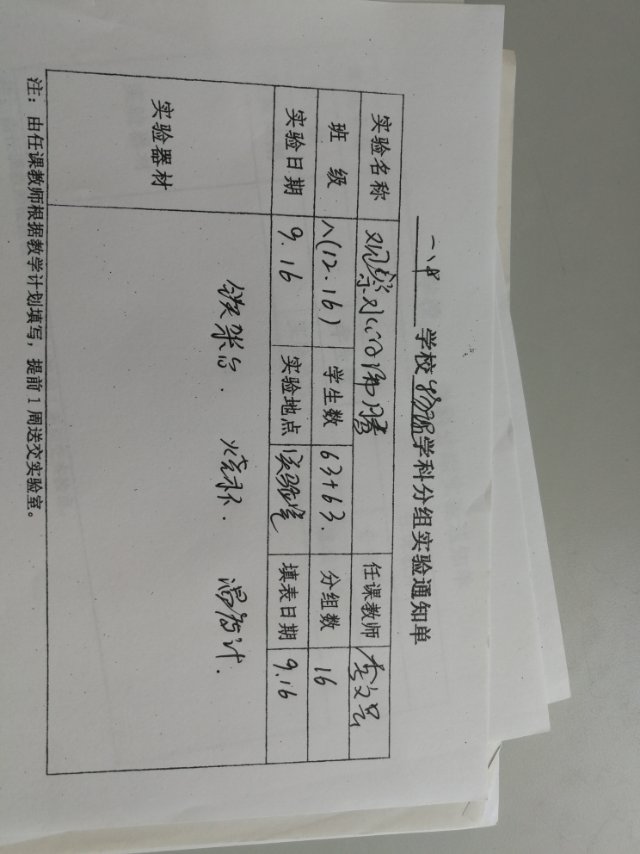 一、中 学校 物理 学科分组实验通知单
实验名称 观察水的沸腾 任课教师 李文
班 级 八(12.16) 学生数 63+63. 分组数 16
实验日期 9.16 实验地点 实验室 填表日期 9.16
实验器材 铁架台. 烧杯. 温度计.
注：由任课教师根据教学计划填写，提前1周送交实验室。